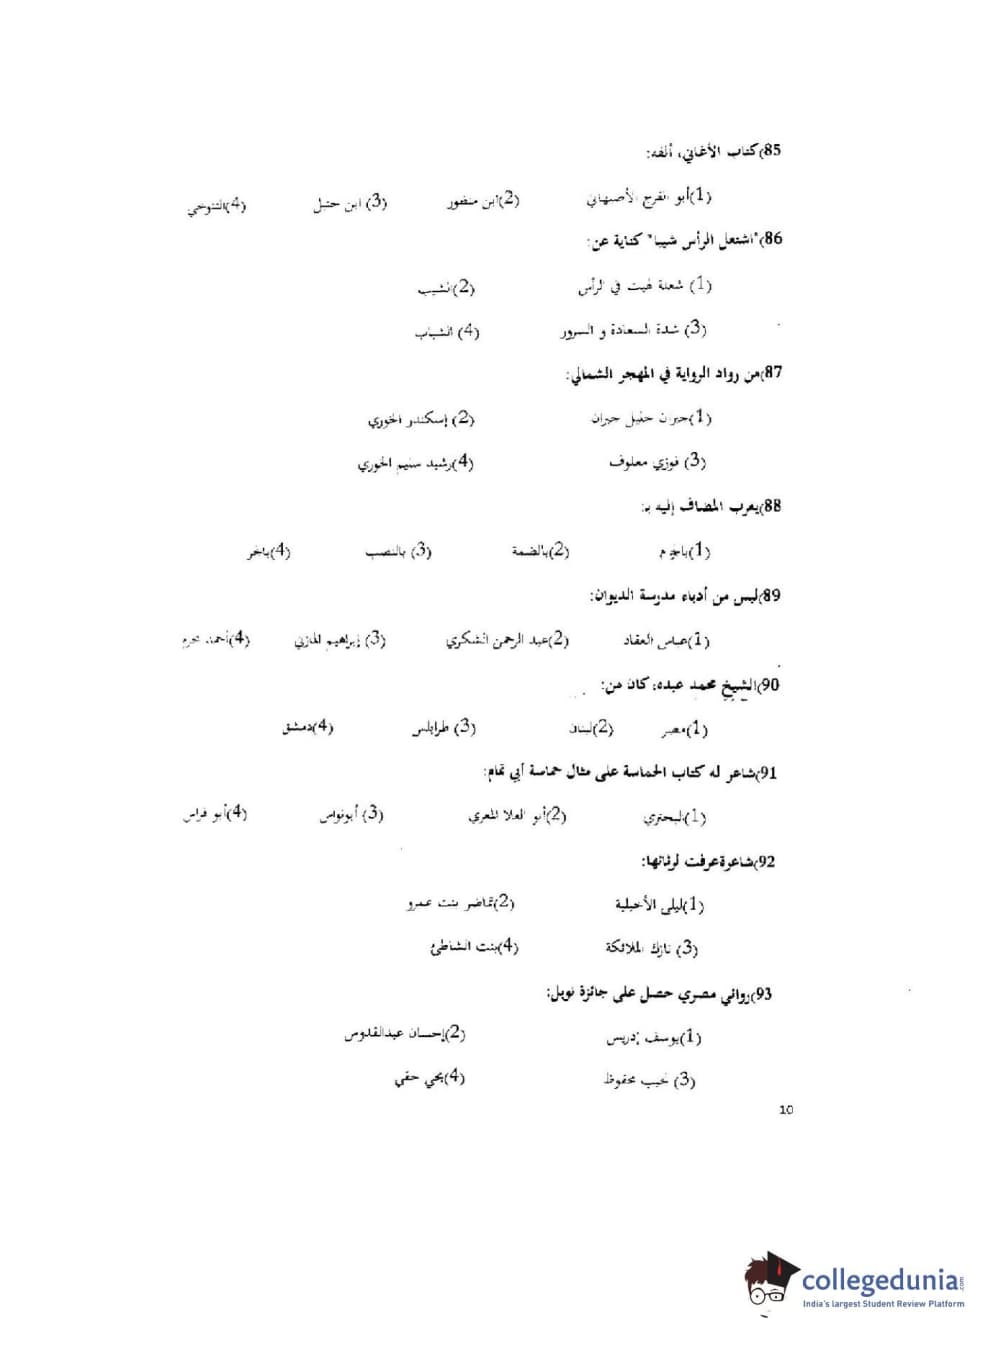 85)كتاب الأغاني، ألفه:
(1)أبو الفرج الأصبهاني (2)ابن منظور (3) ابن حنبل (4)التنوخي
86)"اشتعل الرأس شيبا" كناية عن:
(1) شعلة لهبت في الرأس (2)الشيب
(3) شدة السعادة و السرور (4) الشباب
87)من رواد الرواية في المهجر الشمالي:
(1)جبران خليل جبران (2) إسكندر الخوري
(3) فوزي معلوف (4)رشيد سليم الخوري
88)يعرب المضاف إليه بـ:
(1)بالجزم (2)بالضمة (3) بالنصب (4)بالجر
89)ليس من أدباء مدرسة الديوان:
(1)عباس العقاد (2)عبد الرحمن الشكري (3) إبراهيم المازني (4)أحمد محرم
90)الشيخ محمد عبده، كان من:
(1)مصر (2)لبنان (3) طرابلس (4)دمشق
91)شاعر له كتاب الحماسة على مثال حماسة أبي تمام:
(1)البحتري (2)أبو العلا المعري (3) أبونواس (4)أبو فراس
92)شاعرةعرفت لرثائها:
(1)ليلى الأخيلية (2)تماضر بنت عمرو
(3) نازك الملائكة (4)بنت الشاطئ
93)روائي مصري حصل على جائزة نوبل:
(1)يوسف إدريس (2)إحسان عبدالقدوس
(3) نجيب محفوظ (4)يحي حقي
10
collegedunia.com
India's largest Student Review Platform